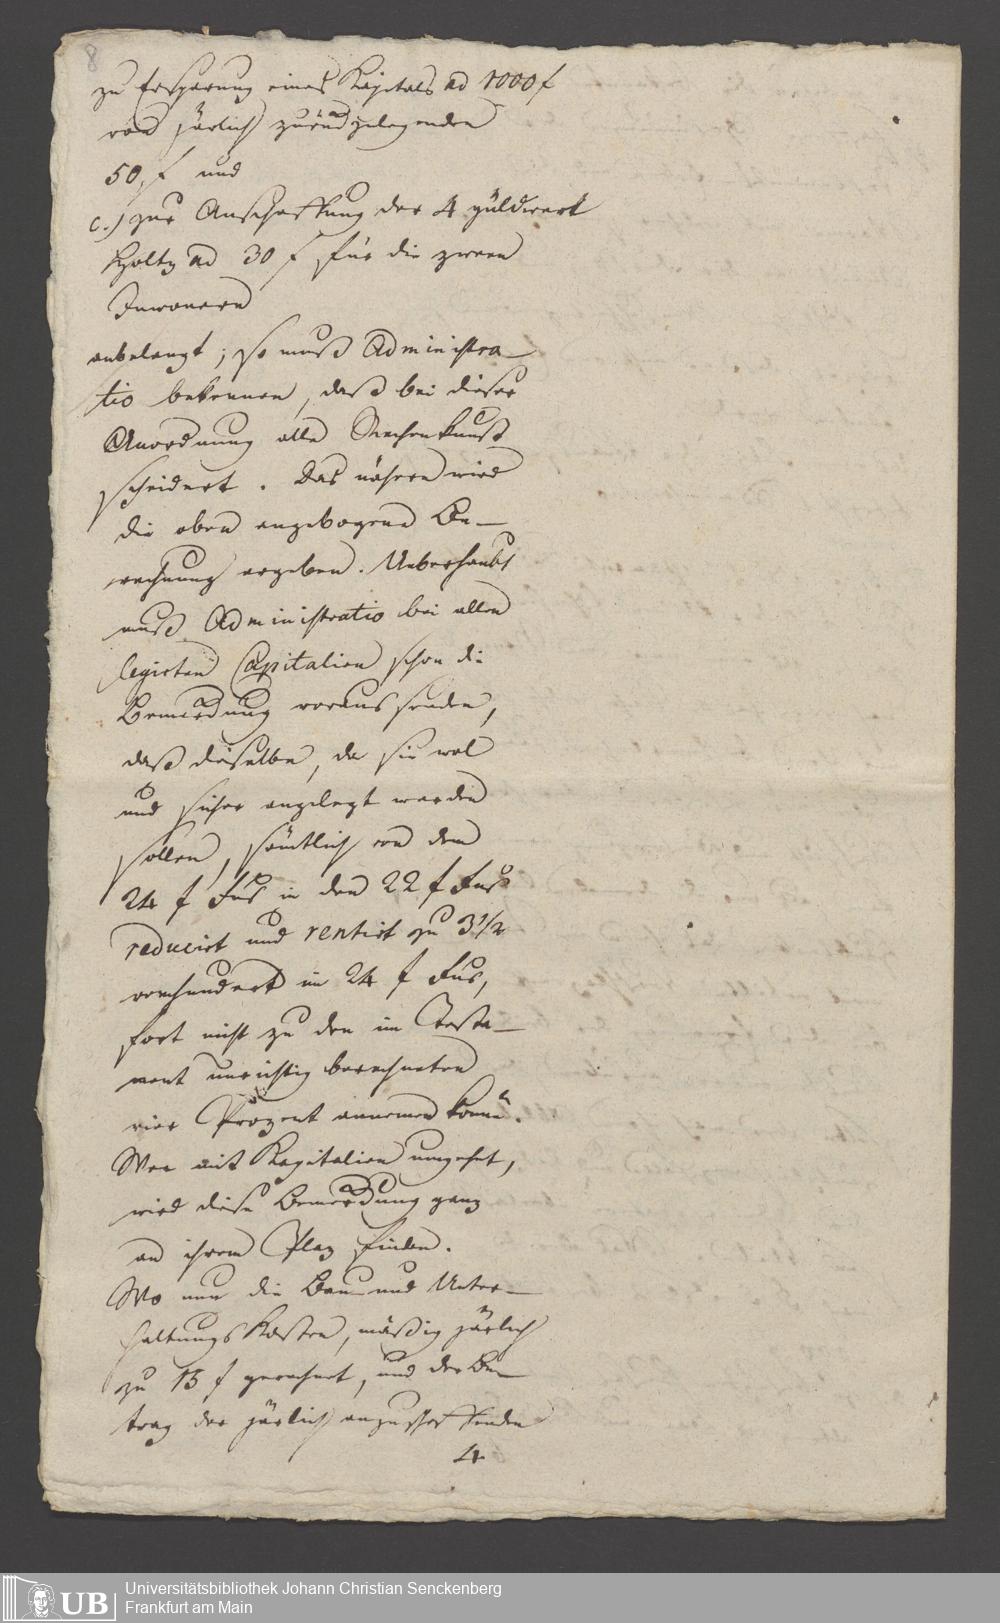 8
zu Ersparung eines Kapitals ad 1000 f
von järlich zurückzulegenden
50. f und
c.) zur Anschaffung der 4 güldwert
Holtz ad 30 f für die zween
Inwonern
anbelangt; so muß Administra-
tio bekennen, daß bei dieser
Anordnung alle Rechenkunst
scheidert. Das nähere wird
die oben angebogene Be-
rechnung ergeben. Ueberhaubt
muß Administratio bei allen
legirten Capitalien schon die
Bemerckung voraus senden,
daß dieselbe, da sie wol
und sicher angelegt werden
sollen, sämtlich von dem
24 f Fus in den 22 f Fus
reducirt und rentirt zu 3 1/2
vomhundert im 24 f Fus,
fort nicht zu den im Testa-
ment unrichtig berechneten
vier Prozent annemen könne.
Wer mit Kapitalien umgehet,
wird diese Bemerckung ganz
an ihrem Plaz finden.
Wo nun die Bau- und Unter-
haltungs Kosten, mäßig järlich
zu 15 f gerechnet, und der Be-
trag der järlich anzuschaffenden
4
UB
Universitätsbibliothek Johann Christian Senckenberg
Frankfurt am Main